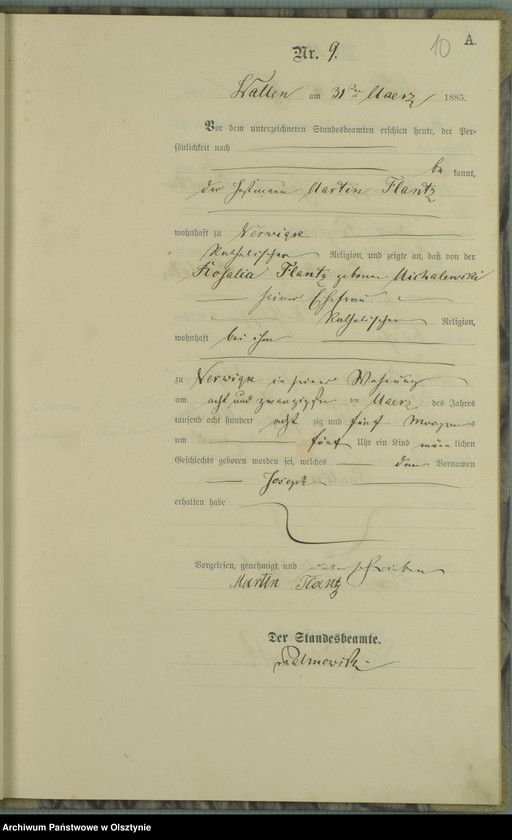 10 A.
Nr. 9.
Wallen am 31ten Maerz 1885.
Vor dem unterzeichneten Standesbeamten erschien heute, der Per-
sönlichkeit nach
be kannt,
der Martin Flantz
wohnhaft zu Nerwigk
Katholischer Religion, und zeigte an, daß von der
Rosalia Flantz geborene Michalewski
seiner Ehefrau
Katholischer Religion,
wohnhaft bei ihm
zu Nerwigk in seiner Wohnung
am acht und zwanzigsten ten Maerz des Jahres
tausend acht hundert acht zig und fünf Morgens
um fünf Uhr ein Kind männ lichen
Geschlechts geboren worden sei, welches den Vornamen
Joseph
erhalten habe
Vorgelesen, genehmigt und unterschrieben
Martin Flantz
Der Standesbeamte.
Archiwum Państwowe w Olsztynie